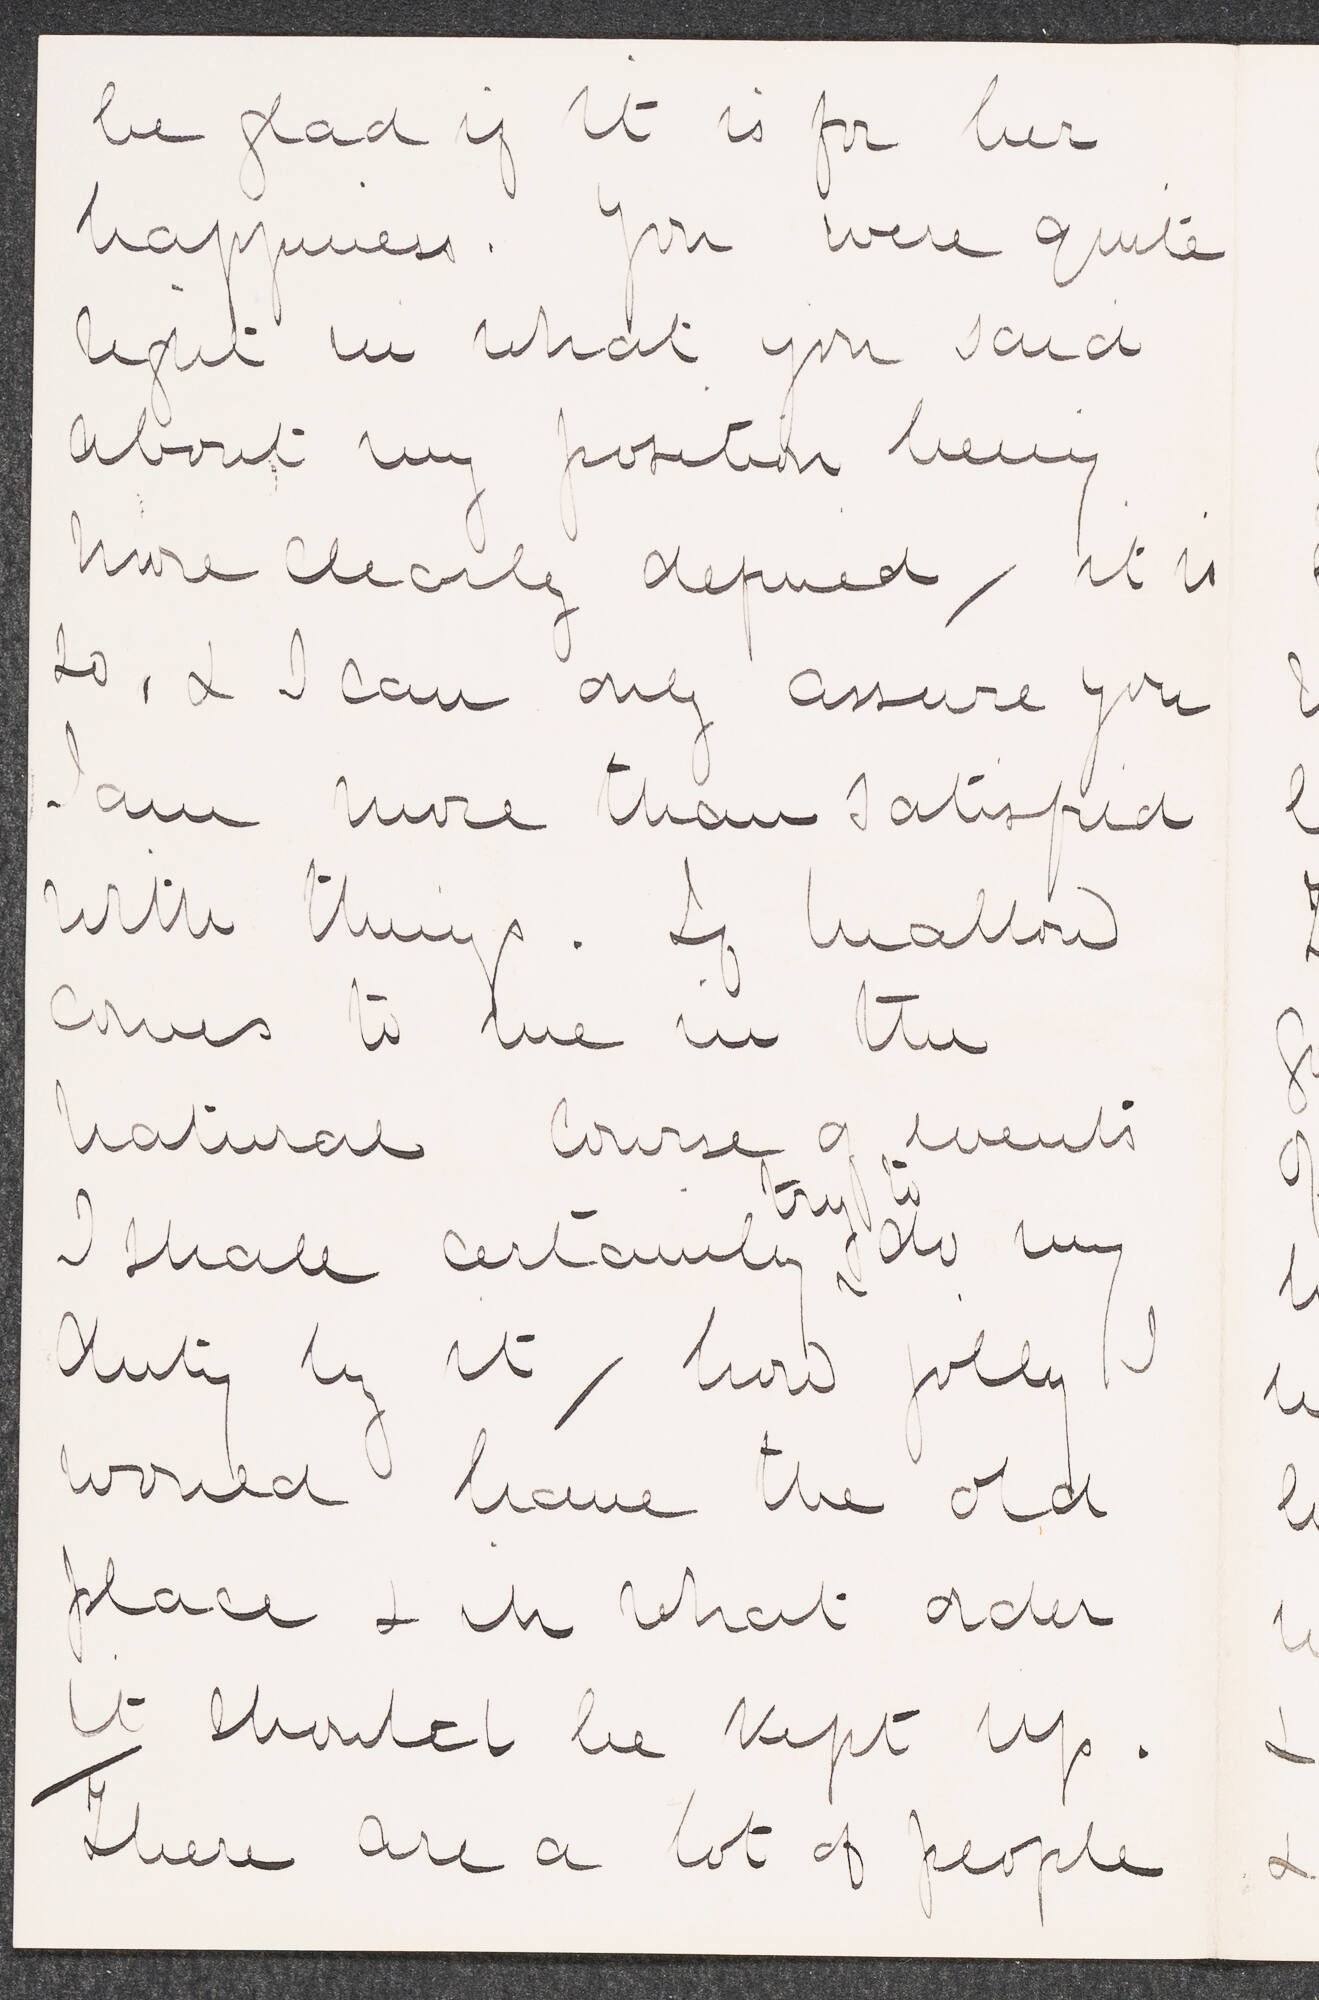 be glad if it is for her
happiness. You were quite
right in what you said
about my position being
more clearly defined, it is
so, & I can only assure you
I am more than satisfied
with things. If
comes to me in the
natural course of events
I shall certainly try to do my
duty by it, how jolly I
would have the old
place & in what order
it should be kept up.
There are a lot of people